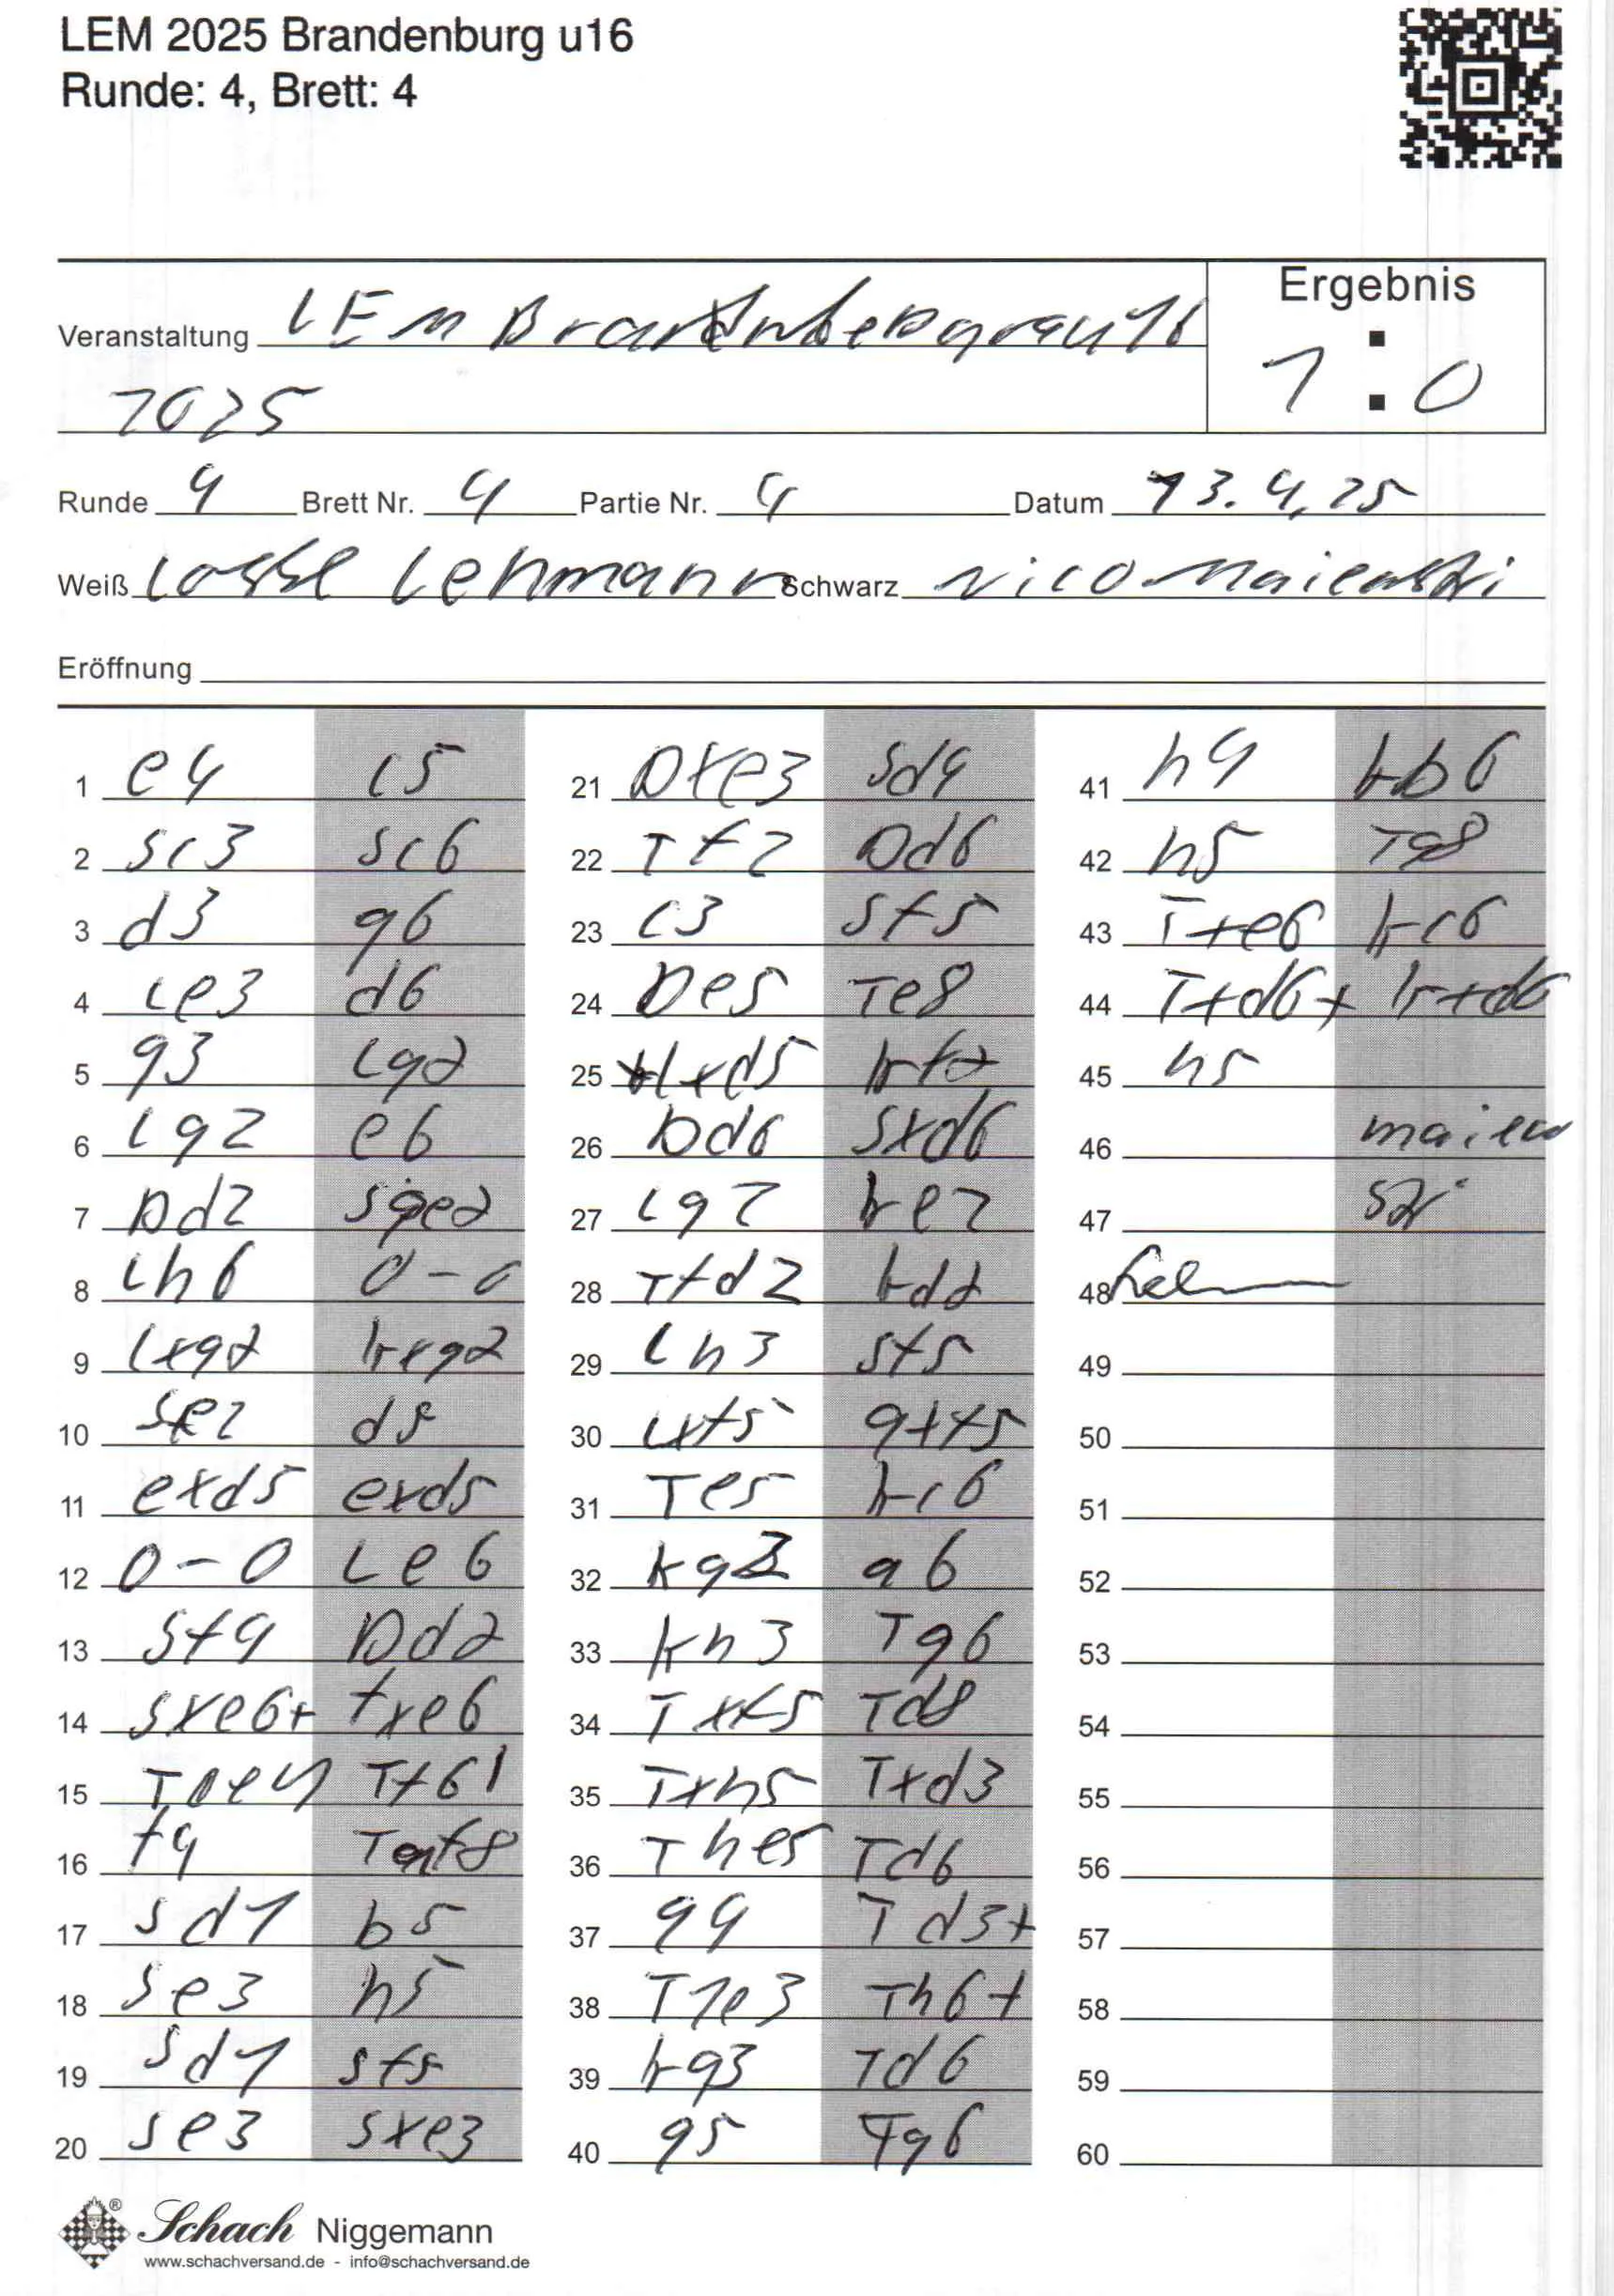 LEM 2025 Brandenburg u16
Runde: 4, Brett: 4
Ergebnis
Veranstaltung LEM
2025
1 : 0
Runde 4 Brett Nr. 4 Partie Nr. 4 Datum 13.4.25
Weiß Lehmann Schwarz Nico
Eröffnung
1 e4 c5
2 Sc3 Sc6
3 d3 g6
4 Le3 d6
5 g3 Lg7
6 Lg2 e6
7 Dd2 Sge7
8 Lh6 0-0
9 Lxg7 Kxg7
10 Se2 d5
11 exd5 exd5
12 0-0 Le6
13 Sf4 Dd7
14 Sxe6+ fxe6
15 Tae1 Tf6
16 f4 Taf8
17 Sd1 b5
18 Se3 h5
19 Sd1 Sf5
20 Se3 Sxe3
21 Dxe3 Sd4
22 Tf2 Dd6
23 c3 Sf5
24 De5 Te8
25 Lxd5 Kf7
26 Dd6 Sxd6
27 Lg2 Ke7
28 Tfd2 Kd7
29 Lh3 Sf5
30 Lxf5 gxf5
31 Te5 Kc6
32 Kg2 a6
33 Kh3 Tg6
34 Txf5 Td8
35 Txh5 Txd3
36 The5 Td6
37 g4 Td3+
38 T1e3 Th6+
39 Kg3 Td6
40 g5 Tg6
41 h4 Kb6
42 h5 Tg8
43 Txe6 Kc6
44 Txd6+ Kxd6
45 h5
46 maiew
47 ski
48
49
50
51
52
53
54
55
56
57
58
59
60
Schach Niggemann
www.schachversand.de - info@schachversand.de